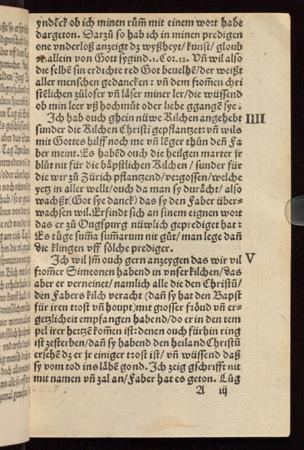 yndëck ob ich minen rům mit einem wort habe
dargeton. Darzů so hab ich in minen predigen
one vnderloß anzeigt dz wyßheyt/ kunst/ gloub
ꝛc. allein von Gott sygind .1. Cor. 12. Vñ wil also
die selbē sin erdichte red Got beuelhē/ der weißt
aller menschen gedancken: vñ dem fromēn chri
stēlichen zůloser vñ låser miner ler/ die wüssend
ob min leer vß hochmůt oder liebe ggangē sye.
IIII
Ich hab ouch ghein nüwe Kilchen angehebt
sunder die Kilchen Christi gepflantzet: vñ wils
mit Gottes hilff noch me vñ lēger thůn deñ Fa
ber meint. Es habēd ouch die heilgen marter jr
blůt nit für die båpstlichen Kilchen/ sunder für
die wir zů Zürich pflantzend/ vergossen/ welche
yetz in aller welt/ ouch da man sy durächt/ also
wachßt (Got sye danck) das sy den Faber über-
wachsen wil. Erfindt sich an sinem eignen wort
das er zů Ougspurg nüwlich geprediget hat:
Es tüge summa summarum nit gůt/ man lege dañ
die klinger vff sölche prediger.
V
Ich wil jm ouch gern anzeygen das wir vil
fromēr Simeonen habend in vnser kilchen/ das
aber er verneinet/ namlich alle die den Christū/
den Fabers kilch veracht (dañ sy hat den Bapst
für iren trost vñ houpt) mit grosser fröud vñ er-
getzlicheit empfangen habend/ do er in den tem
pel irer hertzē komēn ist: denen ouch fürhin ring
ist zesterben/ dañ sy habend den heiland Christū
ersehē dz er jr einiger trost ist/ vñ wüssend daß
sy vom tod ins låbē gond. Ich zeig gschrifft nit
mit namen vñ zal an/ Faber hat es geton. Lůg
A iij